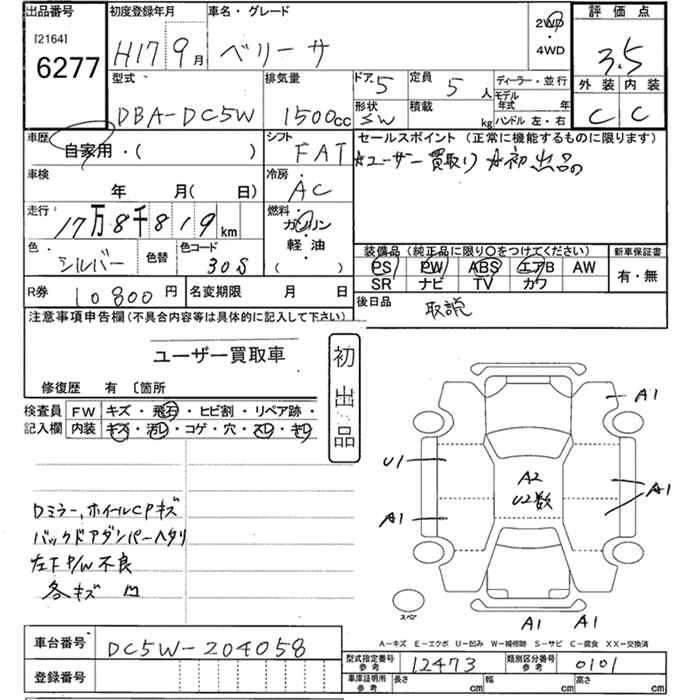 出品番号 初度登録年月 車名・グレード 評価点
[2164]
6277 H17 9月 ベリーサ 2WD・4WD 3.5
外装 内装
C C
型式 排気量 ドア 定員 ディーラー・並行
DBA-DC5W 1500cc 5 5人 モデル年式 年
形状 積載 ハンドル 左・右
SW kg
車歴 シフト セールスポイント (正常に機能するものに限ります)
自家用・( ) FAT ☆ユーザー買取り ☆初出品の
車検 冷房
年 月( 日) AC
走行 燃料
17万8千819km ガソリン
軽油
( )
色 色替 色コード
シルバー 30S
装備品(純正品に限り○をつけてください) 新車保証書
PS PW ABS エアB AW 有・無
SR ナビ TV カワ
R券 10800円 名変期限 月 日 後日品
取説
注意事項申告欄(不具合内容等は具体的に記入して下さい)
ユーザー買取車
初出品
修復歴 有 〔箇所
検査員記入欄 FW キズ・飛石・ヒビ割・リペア跡・
内装 キズ・汚レ・コゲ・穴・スレ・キレ
A1
U1
A2
U2数
A1
A1
Dミラー,ホイールCPキズ
バックドアダンパーヘタリ
左下P/W不良
各キズ凹
スペア
A1 A1
A-キズ E-エクボ U-凹み W-補修跡 S-サビ C-腐食 XX-交換済
車台番号 DC5W-204058
型式指定番号 参考 12473 類別区分番号 参考 0101
登録番号
車庫証明用 参考 長さ cm 幅 cm 高さ cm